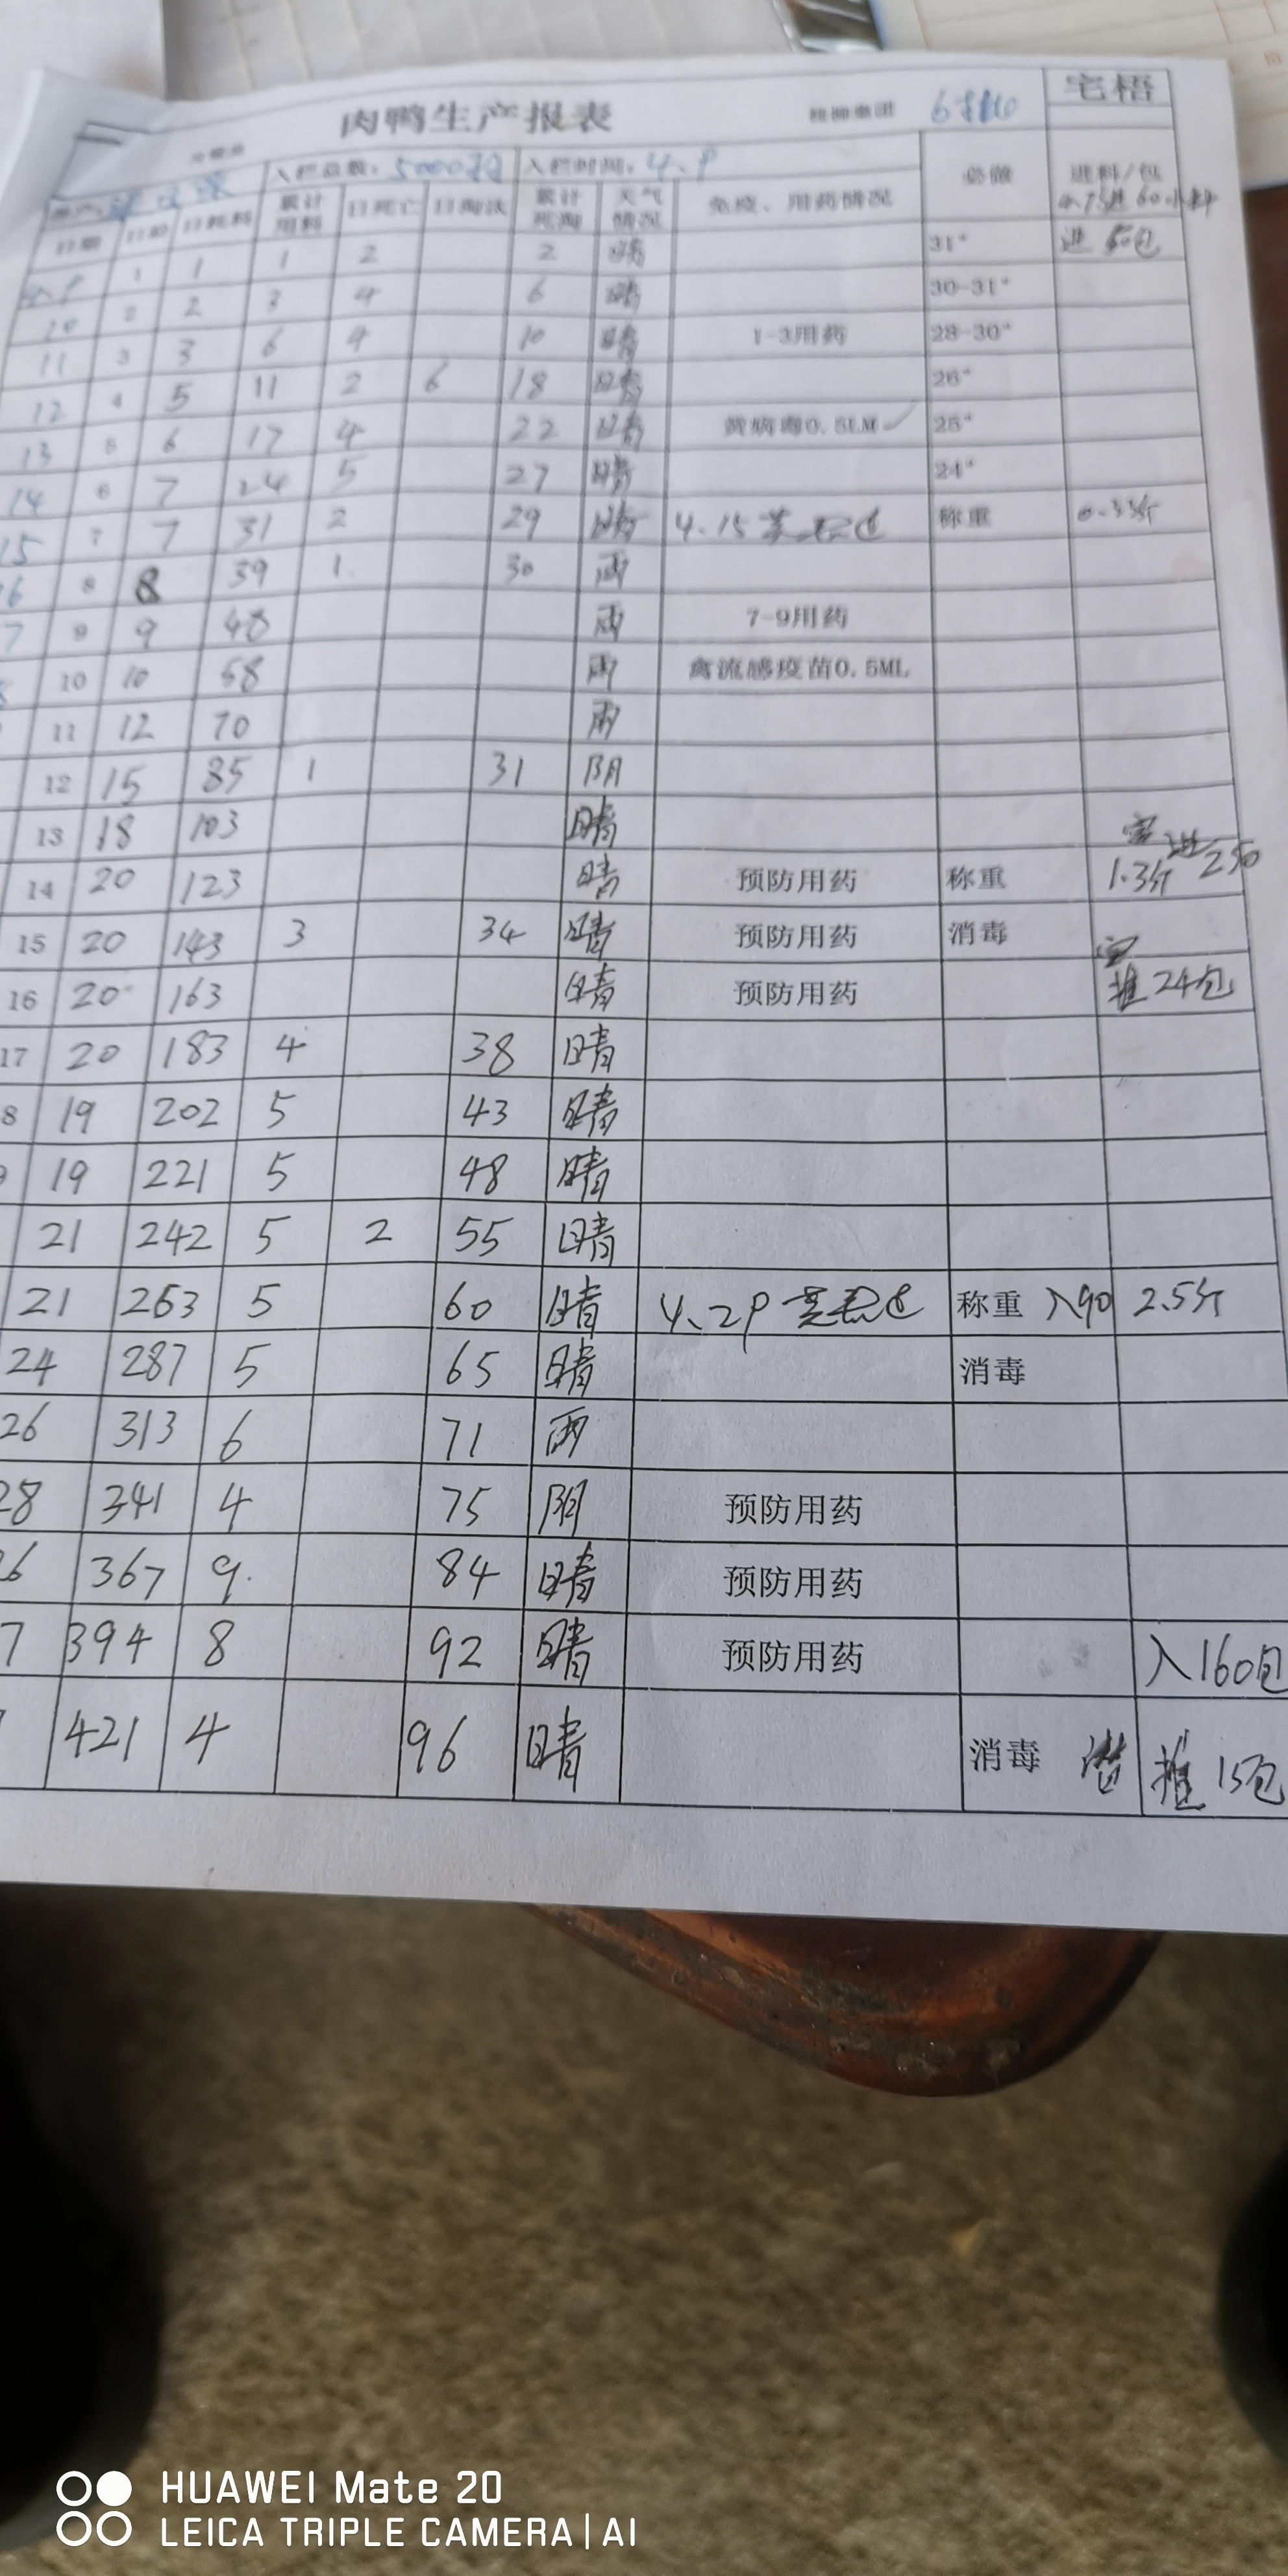 肉鸭生产报表 宅梧
入栏总数：5000 入栏时间：4.9 必做 进料/包
日期 日龄 日耗料 累计用料 日死亡 日淘汰 累计死淘 天气情况 免疫、用药情况
1 1 1 2 2 晴 31°
10 2 2 3 4 6 晴 30-31°
11 3 3 6 4 10 晴 1-3用药 28-30°
12 4 5 11 2 6 18 晴 26°
13 5 6 17 4 22 晴 0.5LM 25°
14 6 7 24 5 27 晴 24°
15 7 7 31 2 29 晴 4.15 称重
6 8 8 39 1 30 雨
7 9 9 48 雨 7-9用药
10 10 58 雨 禽流感疫苗0.5ML
11 12 70 雨
12 15 85 1 31 阴
13 18 103 晴
14 20 123 晴 预防用药 称重 1.3斤
15 20 143 3 34 晴 预防用药 消毒
16 20 163 晴 预防用药 推24包
17 20 183 4 38 晴
8 19 202 5 43 晴
9 19 221 5 48 晴
21 242 5 2 55 晴
21 263 5 60 晴 4.29 称重 入90 2.5斤
24 287 5 65 晴 消毒
26 313 6 71 雨
28 341 4 75 阴 预防用药
26 367 9 84 晴 预防用药
7 394 8 92 晴 预防用药 入160包
421 4 96 晴 消毒 推15包
HUAWEI Mate 20
LEICA TRIPLE CAMERA | AI